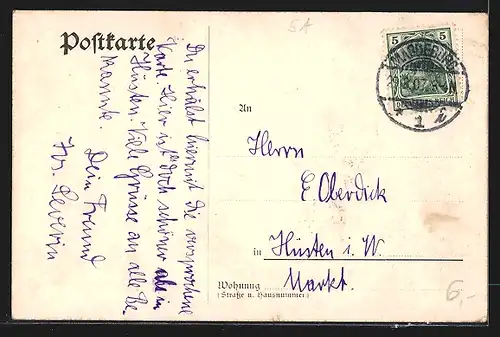 5A
Postkarte
Du erhälst hiermit die versprochene
Karte. Hier ist doch schöner als in
Hüsten. Viele Grüsse an alle Be
kannte. Dein Freund
Jos. Severin
5 5
MAGDEBURG
1
An
Herrn
E Oberdick
in Hüsten i. W.
Markt.
Wohnung
(Straße u. Hausnummer)
6,-